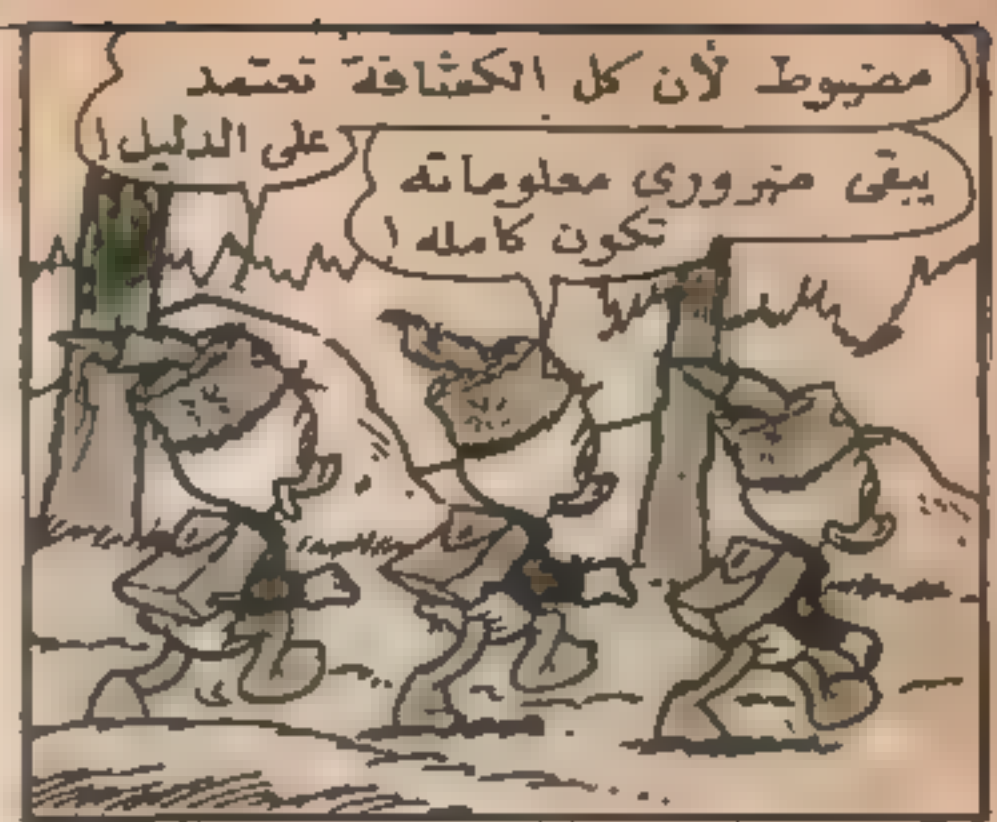 مضبوط لأن كل الكشافة تعتمد
على الدليل !
يبقى ضرورى معلوماته
تكون كامله !